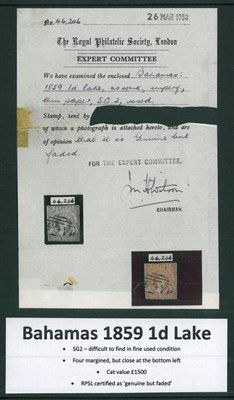 No. 46,246
26 MAR 1958
The Royal Philatelic Society, London
EXPERT COMMITTEE
We have examined the enclosed Bahamas:
1859 1d lake, no wmk, imperf,
thin paper, S.G.2, used
Stamp, sent by
of which a photograph is attached hereto, and are
of opinion that it is genuine but
faded.
FOR THE EXPERT COMMITTEE.
CHAIRMAN.
46,246
46,246
Bahamas 1859 1d Lake
• SG2 – difficult to find in fine used condition
• Four margined, but close at the bottom left
• Cat value £1500
• RPSL certified as 'genuine but faded'